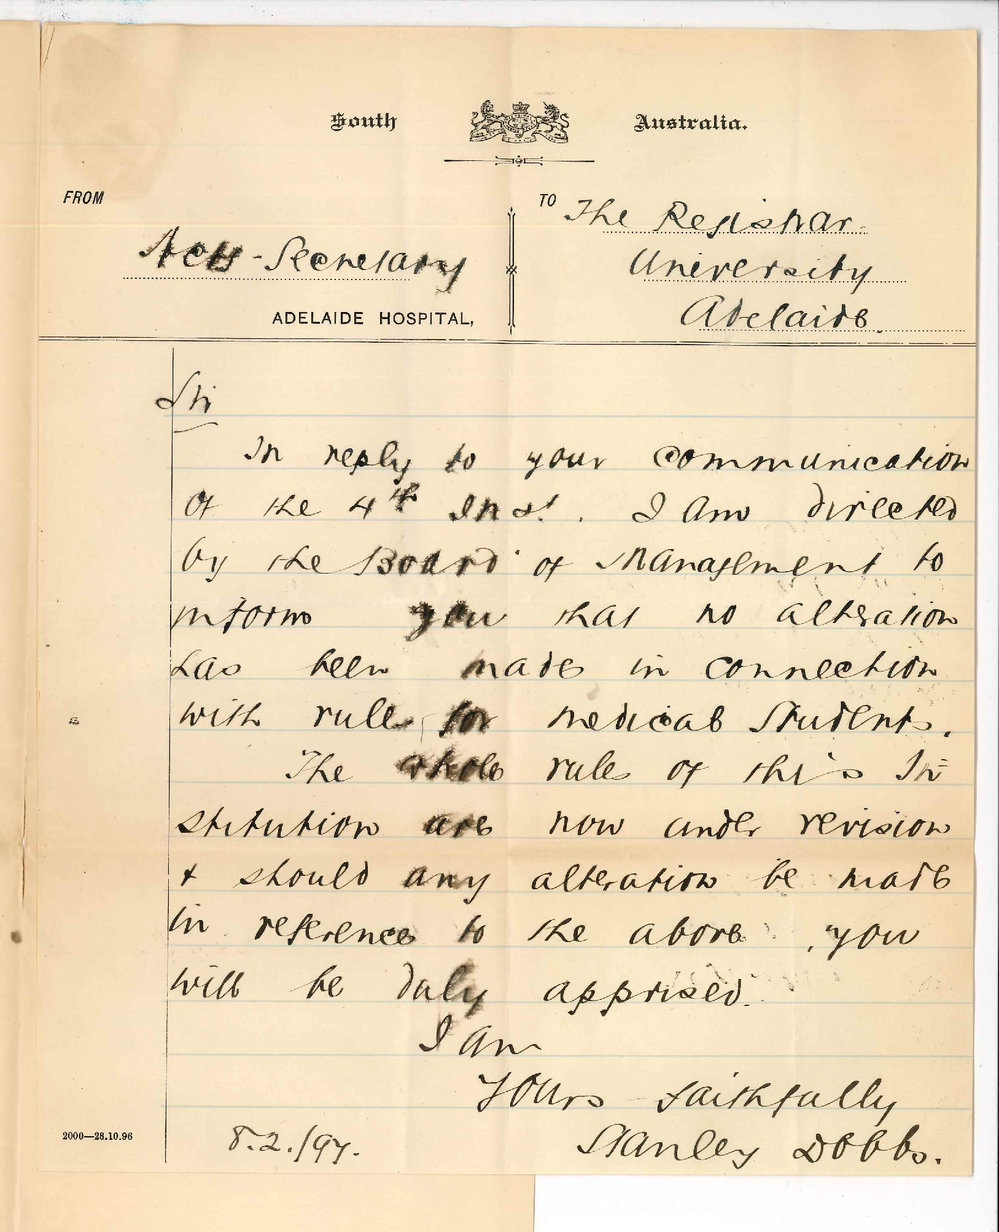 South Australia.
FROM
TO The Registrar
Acts-Secretary
University
ADELAIDE HOSPITAL,
Adelaide.
Sir
In reply to your communication
of the 4th Inst. I am directed
by the Board of Management to
inform you that no alteration
has been made in connection
with rules for medical Students.
The whole rules of this In=
stitution are now under revision
& should any alteration be made
in reference to the above you
will be duly apprised.
I am
Yours faithfully
Stanley Dobbs.
8.2./97.
2000—28.10.96